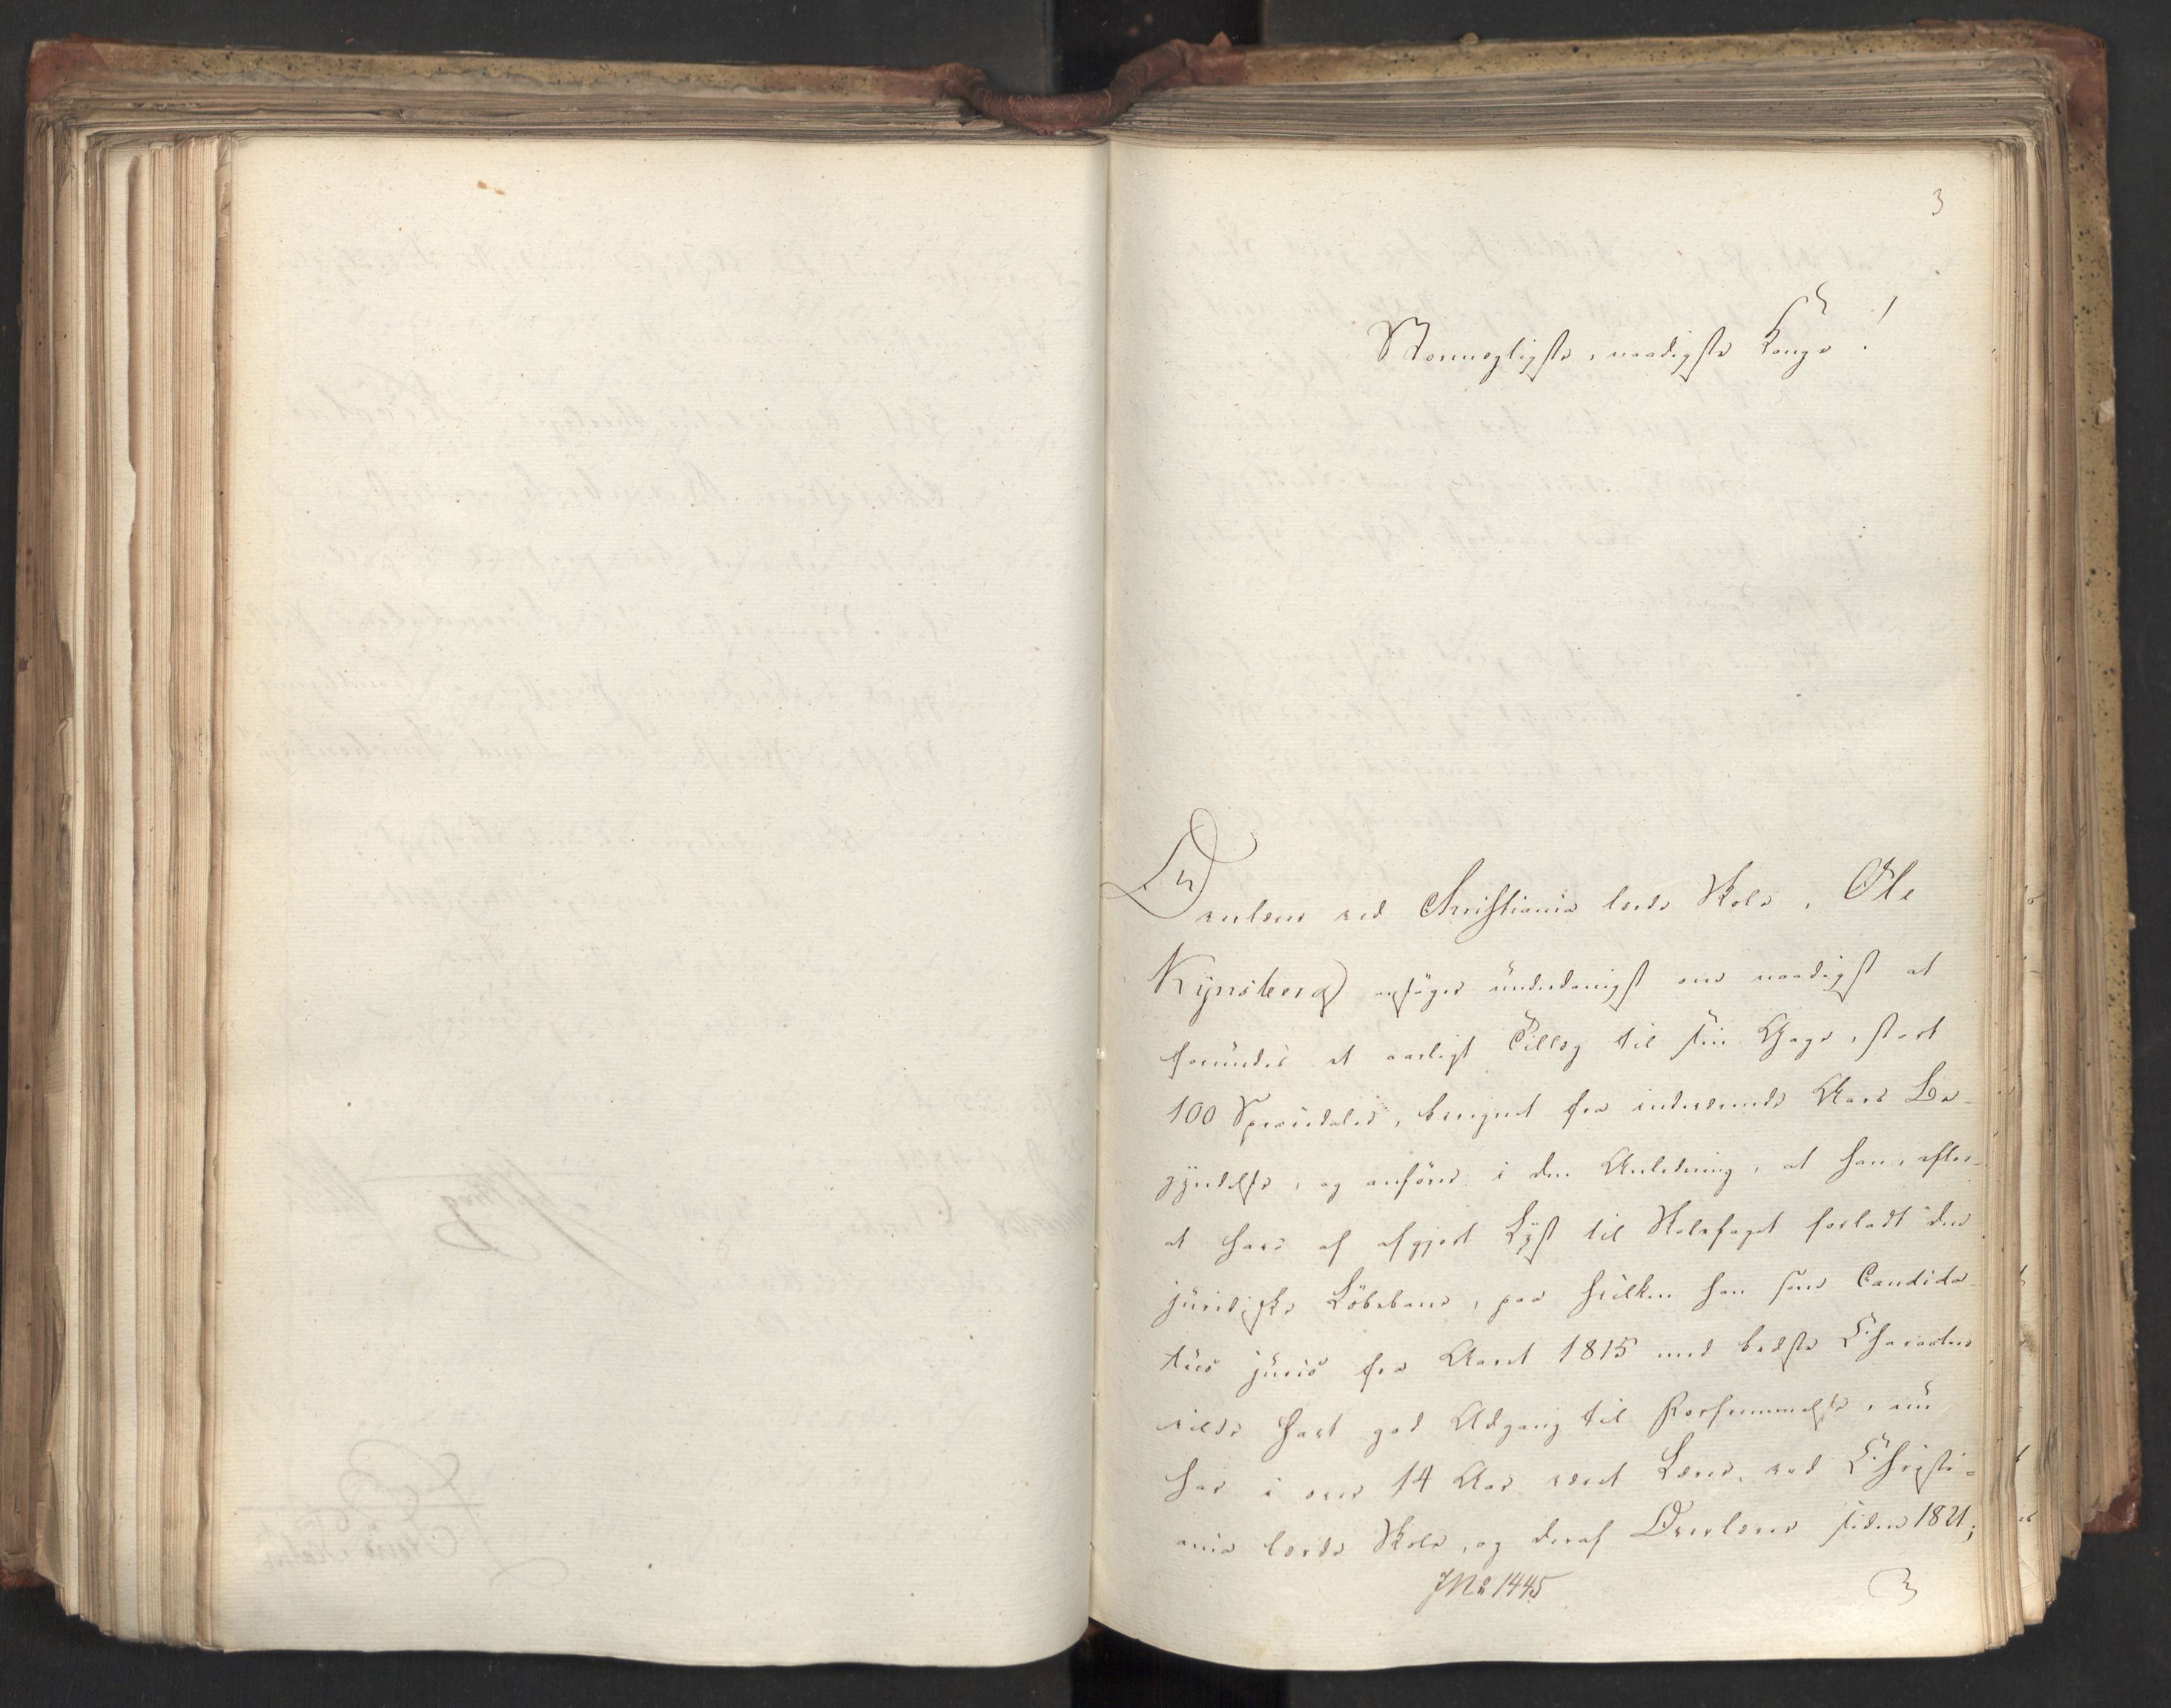 3
Stormægtigste, naadigste Konge!
Overlærer ved Christiania lærde Skole, Ole
Kynsberg ansöger underdanigst om naadigst at
forundes et aarligt Tillæg til sin Gage, stort
100 Speciedaler, beregnet fra indeværende Aars Be-
gyndelse, og anförer i den Anledning, at han, efter-
at have af afgjort Lyst til Skolefaget forladt den
juridiske Löbebane, paa hvilken han som Candida-
tus juris fra Aaret 1815 med bedste Charakter
vilde havt god Adgang til Forfremmelse, nu
har i over 14 Aar været Lærer ved Christi-
ania lærde Skole, og deraf Overlærer siden 1821;
JNo 1445
3